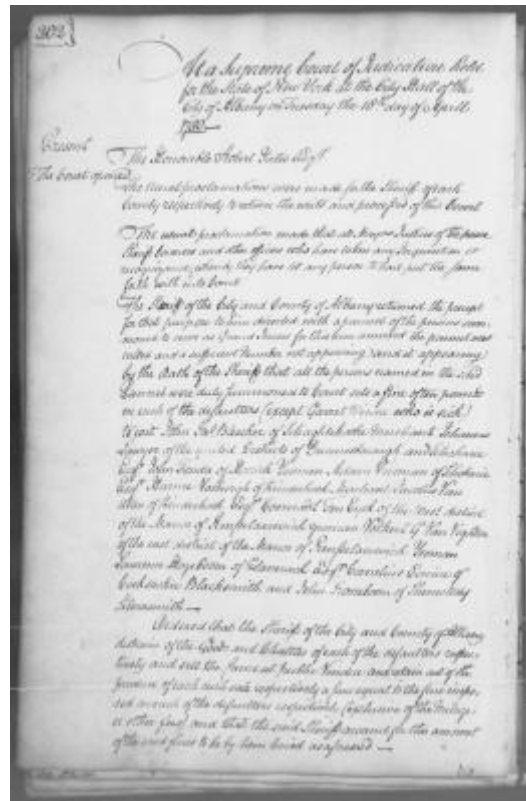 202
At a Supreme Court of Judicature Held
for the State of New York at the City Hall of the
City of Albany on Tuesday the 18th day of April
Present
The Honourable Robert Yates Esqr
The Court opened
The usual proclamations were made for the Sheriff of each
County respectively to return the writs and process of this Court
The usual proclamation made that all Justices of the peace
Coroners and other officers who have taken any Inquisition or
recognizance whereby they have let any person to bail put the same
forth with into Court
The Sheriff of the City and County of Albany returned the precept
for that purpose to him directed with a pannel of the persons sum-
moned to serve as Grand Jurors for this term annexed the pannel was
called and a sufficient number not appearing and it appearing
by the Oath of the Sheriff that all the persons named in the said
Pannel were duly summoned the Court sets a fine of ten pounds
on each of the defaulters (except who is sick)
to wit John Bleecker of Schaghtekoke Merchant
Lawyer of the united Districts of
Esqr Yeoman
Esqr of Kinderhook Merchant Van
of Kinderhook Esqr Van of the west district
of the Manor of Rensselaerwick yeoman G Van Veghten
of the east district of the Manor of Rensselaerwick Yeoman
of Claverack Esqr Cornelius of
Blacksmith and John of
Ordered that the Sheriff of the City and County of Albany
distrain of the Goods and Chattles of each of the defaulters respec-
tively and sell the same at public Vendue and retain out of the
produce of each such sale respectively a fine equal to the fine impo-
sed on each of the defaulters respectively (exclusive of the
or other fees) and that the said Sheriff account for the amount
of the said fines to be by him levied as aforesaid